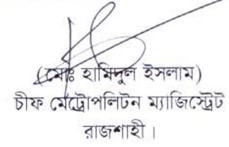 (মোঃ হামিদুল ইসলাম)
চীফ মেট্রোপলিটন ম্যাজিস্ট্রেট
রাজশাহী।